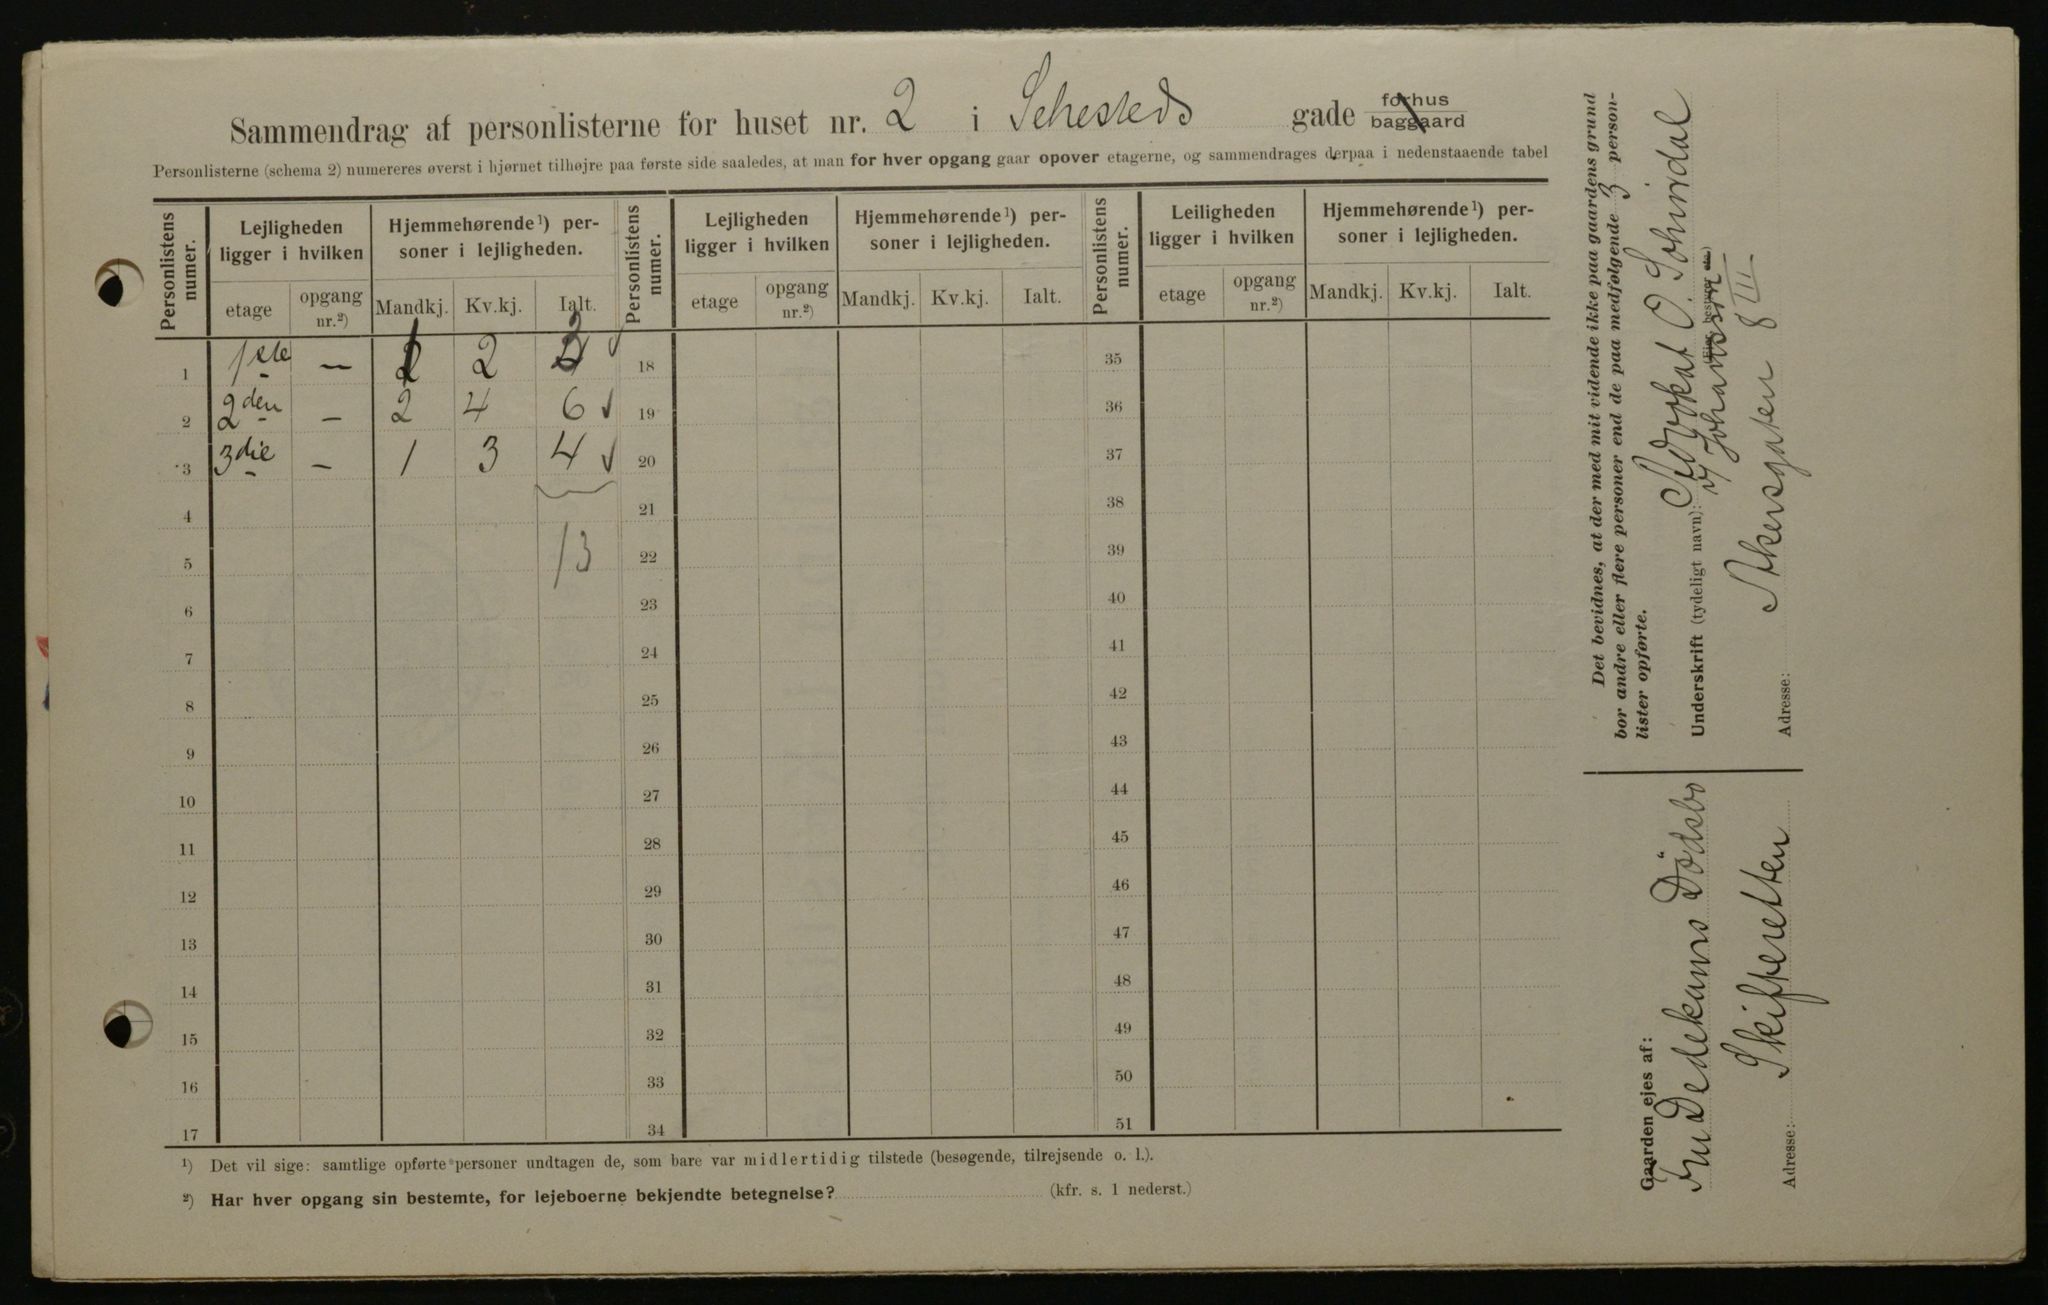 Sammendrag af personlisterne for huset nr. 2 i Sehesteds gade forhus baggaard
Personlisterne (schema 2) numereres øverst i hjørnet tilhøjre paa første side saaledes, at man for hver opgang gaar opover etagerne, og sammendrages derpaa i nedenstaaende tabel
Personlistens numer.
Lejligheden ligger i hvilken
Hjemmehørende ¹) personer i lejligheden.
Personlistens numer.
Lejligheden ligger i hvilken
Hjemmehørende ¹) personer i lejligheden.
Personlistens numer.
Leiligheden ligger i hvilken
Hjemmehørende ¹) personer i lejligheden.
etage opgang nr.²) Mandkj. Kv.kj. Ialt. etage opgang nr.²) Mandkj. Kv.kj. Ialt. etage opgang nr.²) Mandkj. Kv.kj. Ialt.
1 1ste — 1 2 3 18 35
2 2den — 2 4 6 19 36
3 3die — 1 3 4 20 37
4 21 38
5 13 22 39
6 23 40
7 24 41
8 25 42
9 26 43
10 27 44
11 28 45
12 29 46
13 30 47
14 31 48
15 32 49
16 33 50
17 34 51
¹) Det vil sige: samtlige opførte personer undtagen de, som bare var midlertidig tilstede (besøgende, tilrejsende o. l.).
²) Har hver opgang sin bestemte, for lejeboerne bekjendte betegnelse? (kfr. s. 1 nederst.)
Det bevidnes, at der med mit vidende ikke paa gaardens grund
bor andre eller flere personer end de paa medfølgende 3 person-
lister opførte.
Underskrift (tydeligt navn): Advokat O. Schirdal
v/ Johansen
Adresse: Akersgaten 8 III
Gaarden ejes af:
Fru Dedekams Dödsbo
Adresse: Skifteretten